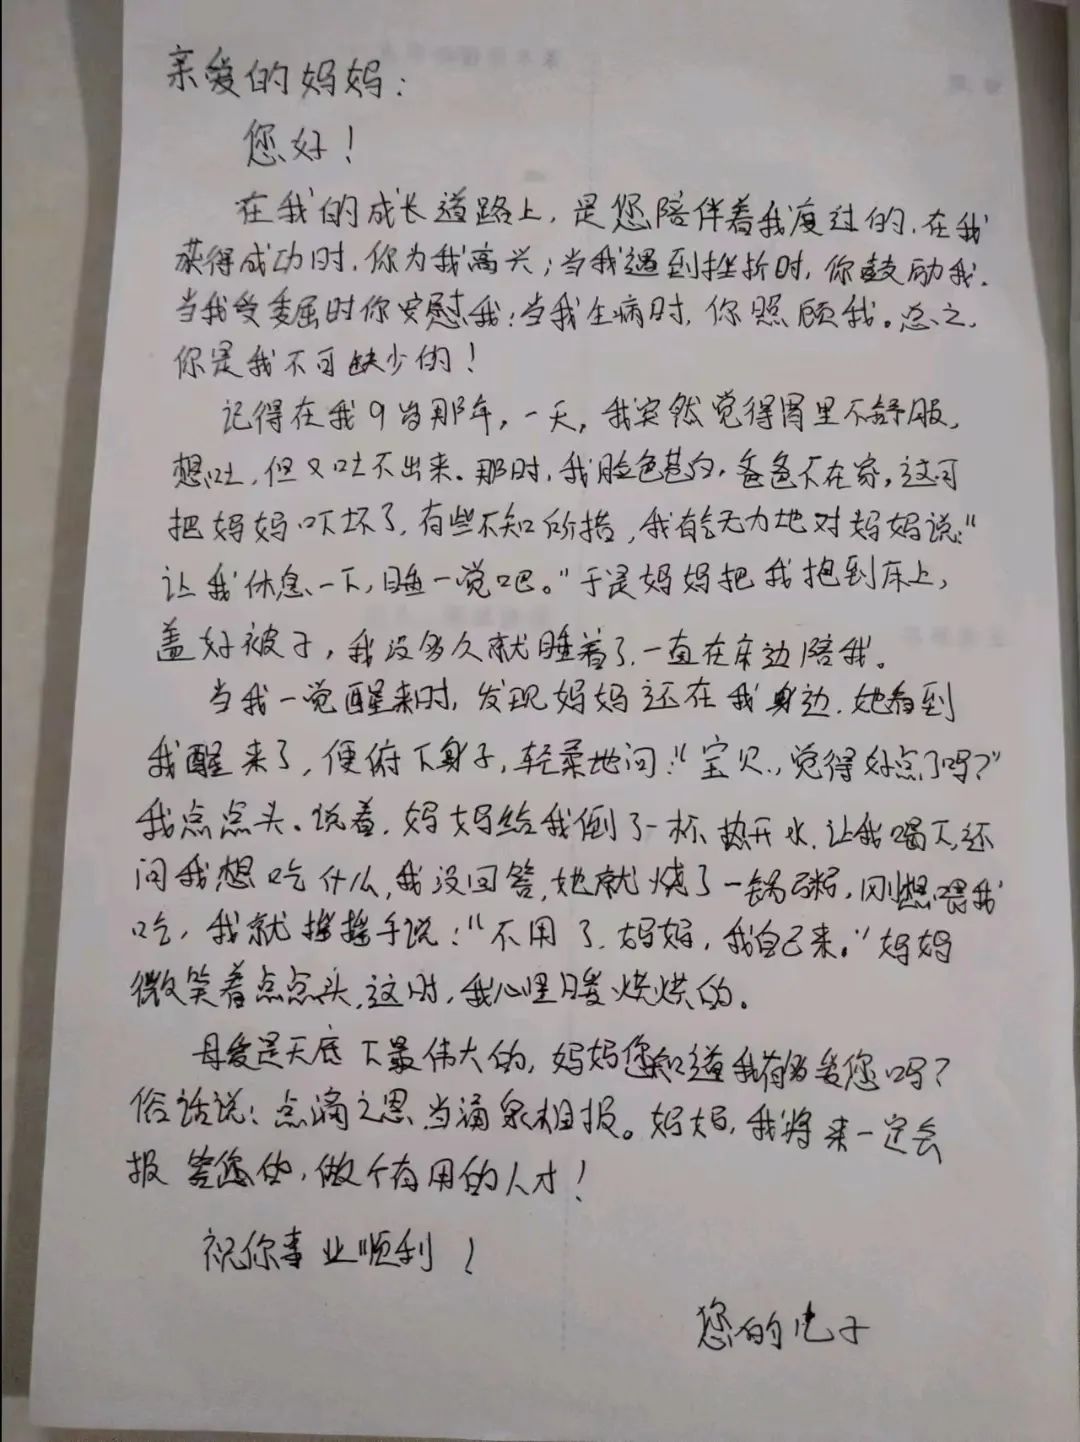 亲爱的妈妈:
您好!
在我的成长道路上,是您陪伴着我度过的.在我
获得成功时.你为我高兴;当我遇到挫折时,你鼓励我.
当我受委屈时你安慰我;当我生病时,你照顾我。总之,
你是我不可缺少的!
记得在我9岁那年,一天,我突然觉得胃里不舒服,
想吐,但又吐不出来.那时,我脸色苍白,爸爸不在家,这可
把妈妈吓坏了,有些不知所措,我有气无力地对妈妈说:"
让我休息一下,睡一觉吧。"于是妈妈把我抱到床上,
盖好被子,我没多久就睡着了.一直在床边陪我。
当我一觉醒来时,发现妈妈还在我身边.她看到
我醒来了,便俯下身子,轻柔地问:"宝贝,觉得好点了吗?"
我点点头。说着,妈妈给我倒了一杯热开水.让我喝下,还
问我想吃什么,我没回答,她就烧了一锅粥,刚想喂我
吃,我就摇摇手说:"不用了.妈妈,我自己来。"妈妈
微笑着点点头.这时,我心里暖烘烘的。
母爱是天底下最伟大的,妈妈您知道我有多爱您吗?
俗话说:点滴之恩当涌泉相报。妈妈,我将来一定会
报答您的,做个有用的人才!
祝你事业顺利!
您的